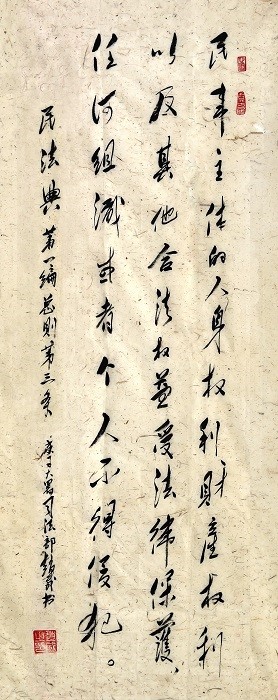 民事主体的人身权利財産权利
以及其他合法权益受法律保護、
任何组织或者个人不得侵犯。
民法典第一编总则第三条
庚子大暑司法部书